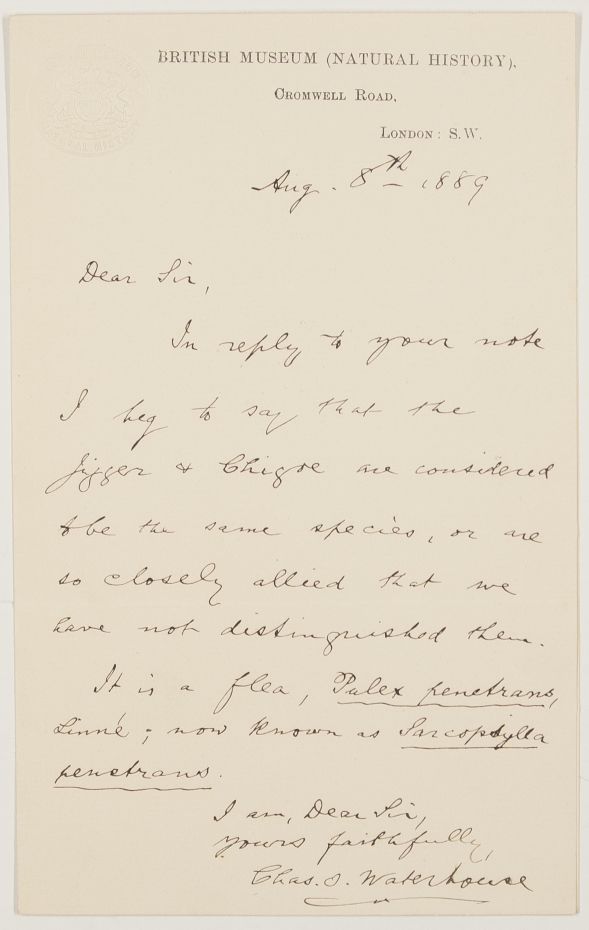 BRITISH MUSEUM (NATURAL HISTORY),
CROMWELL ROAD,
LONDON: S.W.
Aug. 8th 1889
Dear Sir,
In reply to your note
I beg to say that the
Jigger & Chigoe are considered
to be the same species, or are
so closely allied that we
have not distinguished them.
It is a flea, Pulex penetrans,
Linné; now known as Sarcopsylla
penetrans.
I am, Dear Sir,
yours faithfully,
Chas. O. Waterhouse